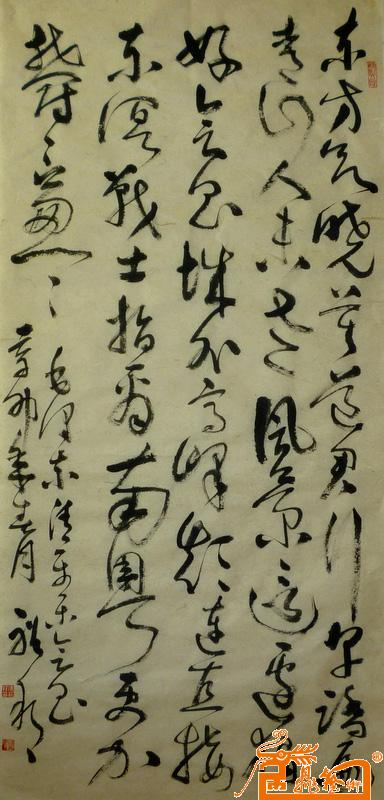 东方欲晓莫道君行早踏遍
青山人未老风景这边独
好会昌城外高峰颠连直接
东溟战士指看南粤更加
郁郁葱葱
毛泽东清平乐会昌
辛卯年春月